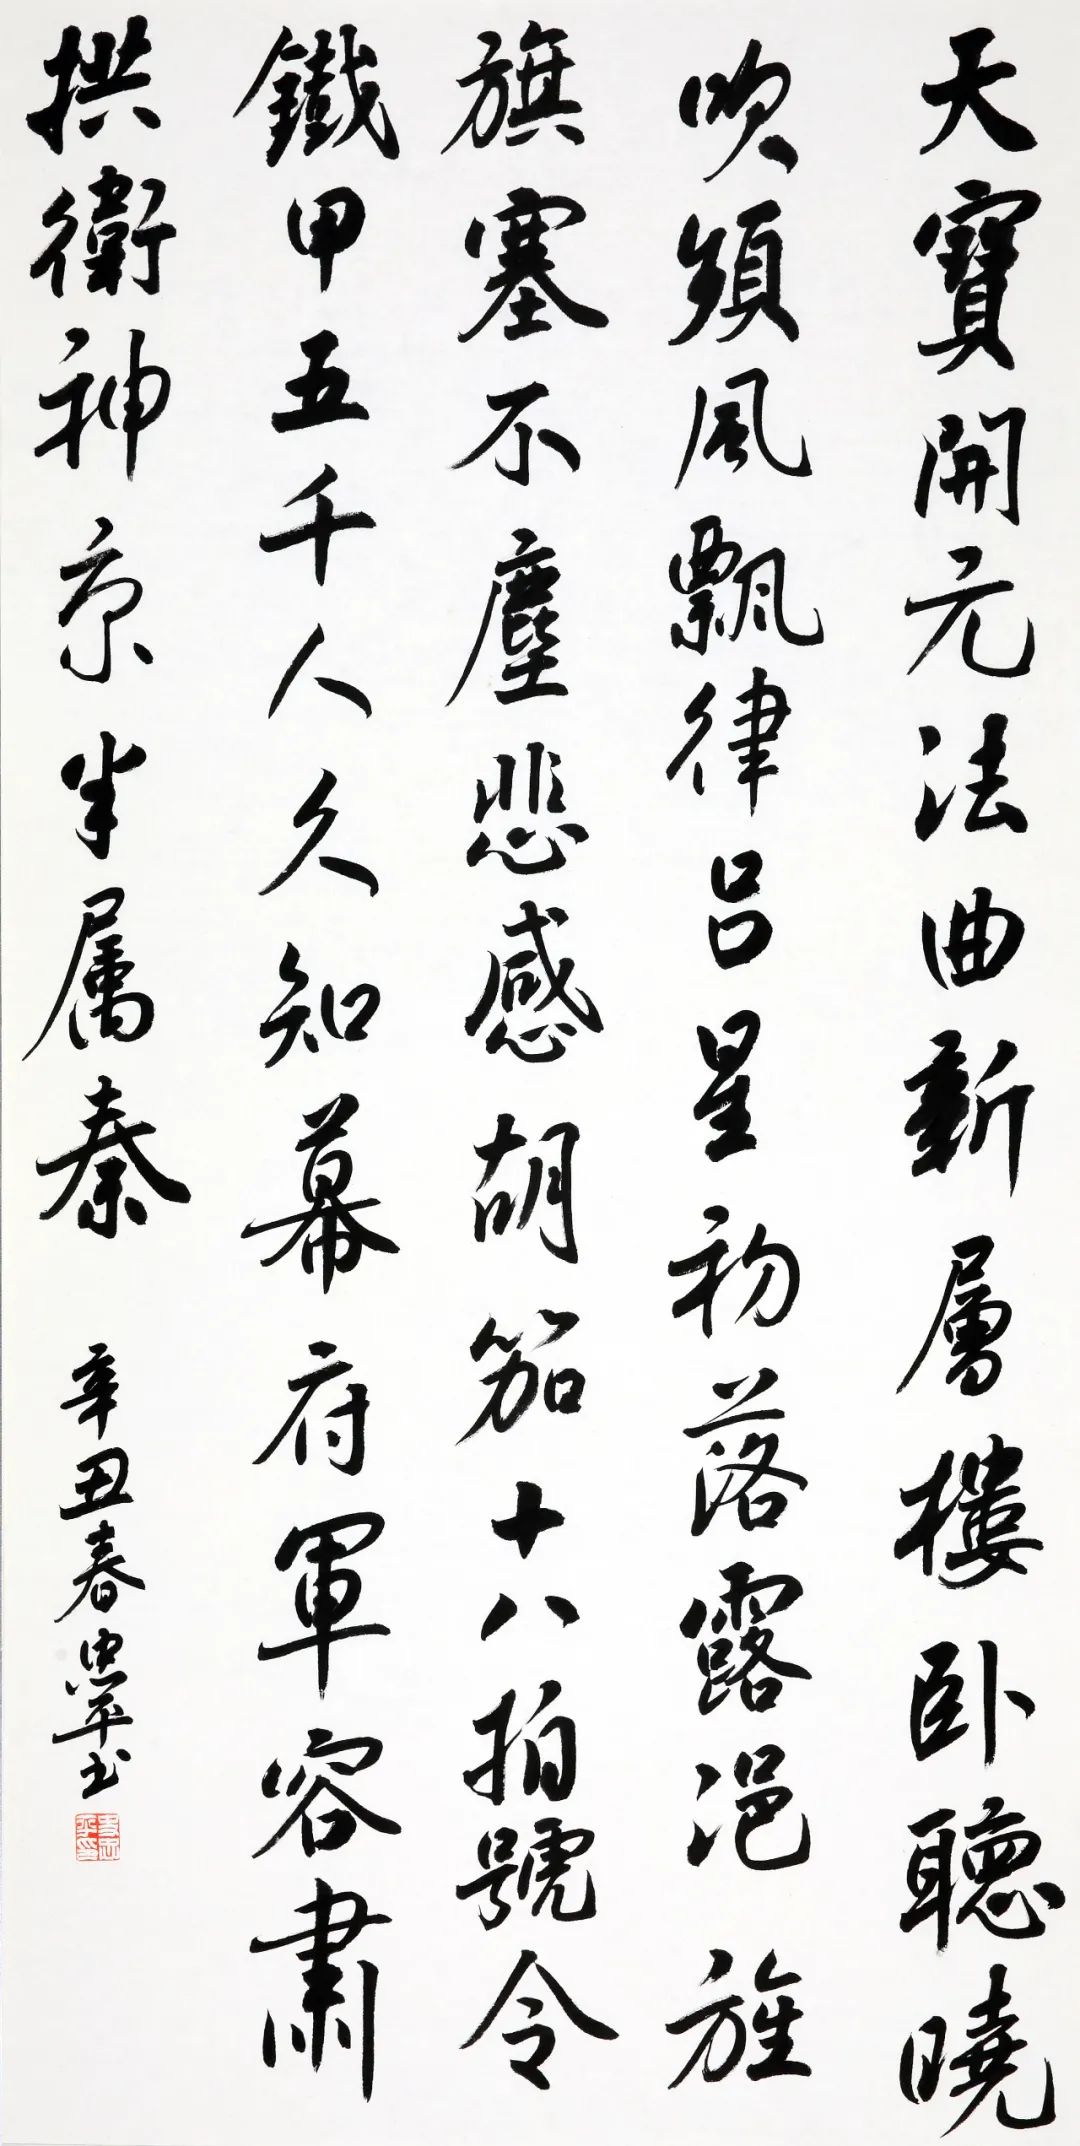 天寶開元法曲新層樓卧聽曉
吹頻風飄律吕星初落露浥旌
旗塞不塵悲感胡笳十八拍號令
鐵甲五千人久知幕府軍容肅
拱衛神京半属秦
辛丑春忠平书